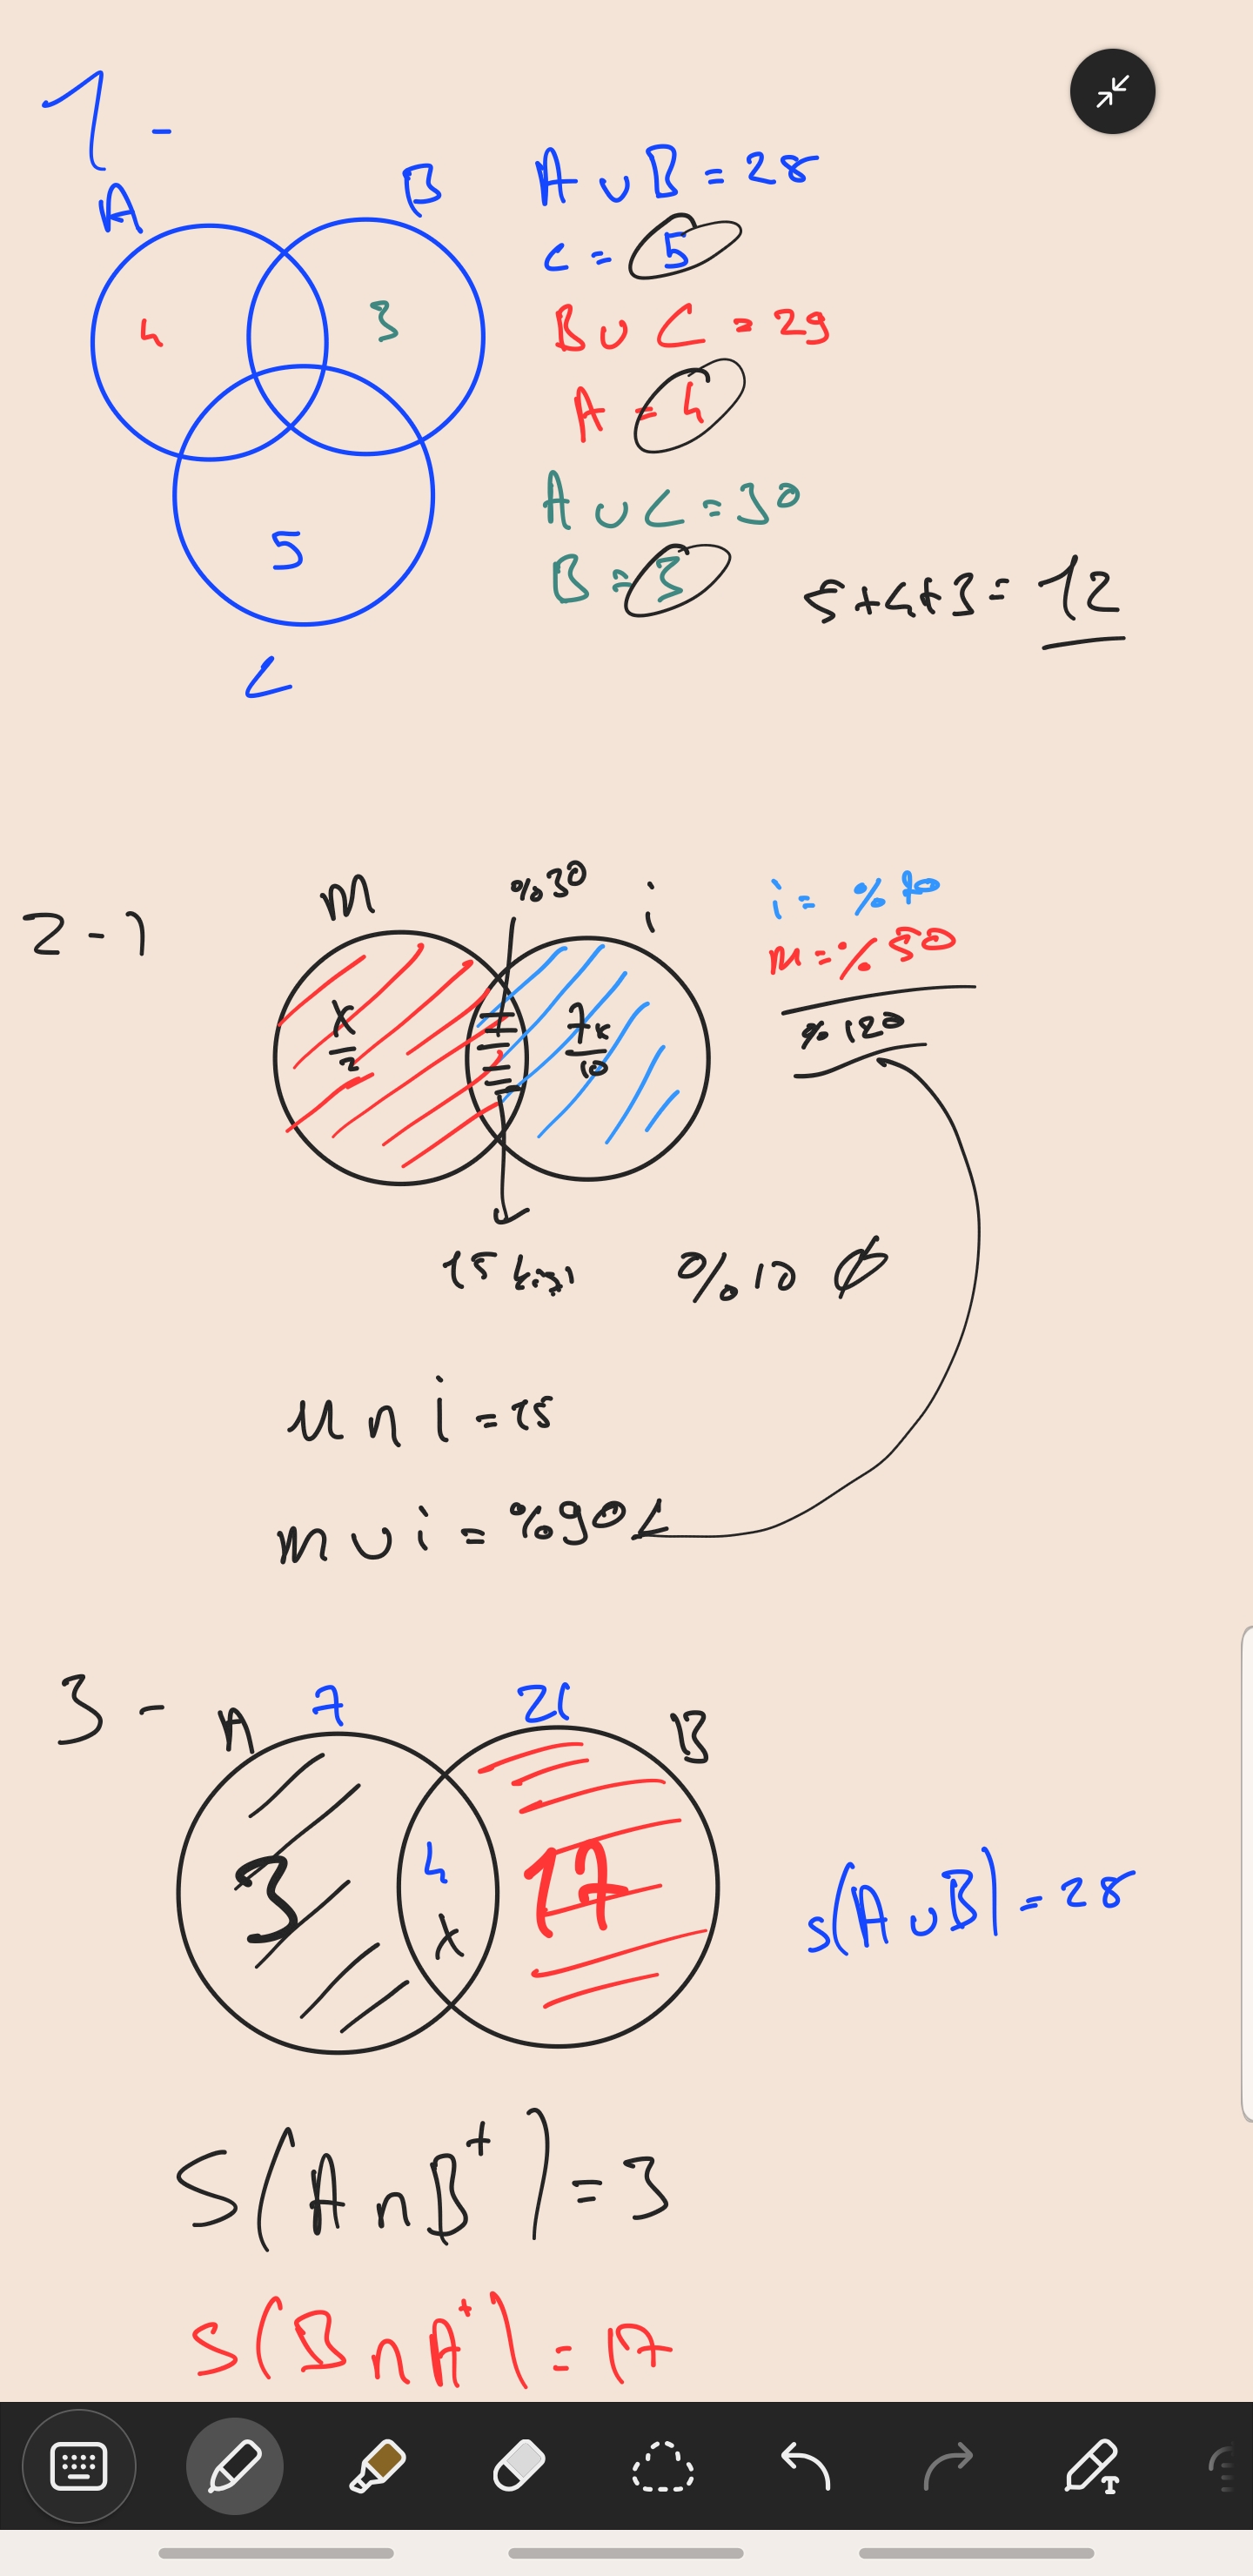 1 -
A
B
4
3
5
C
A ∪ B = 28
C = 5
B ∪ C = 29
A = 4
A ∪ C = 30
B = 3
5+4+3 = 12
2-1
m
%30
i
x/2
7x/10
i = %70
m = %50
%120
15 kişi
%10 ∅
M ∩ i = 15
m ∪ i = %90
3 -
A
7
21
B
3
4
x
17
s(A ∪ B) = 28
S(A ∩ B⁺) = 3
S(B ∩ A⁺) = 17
T